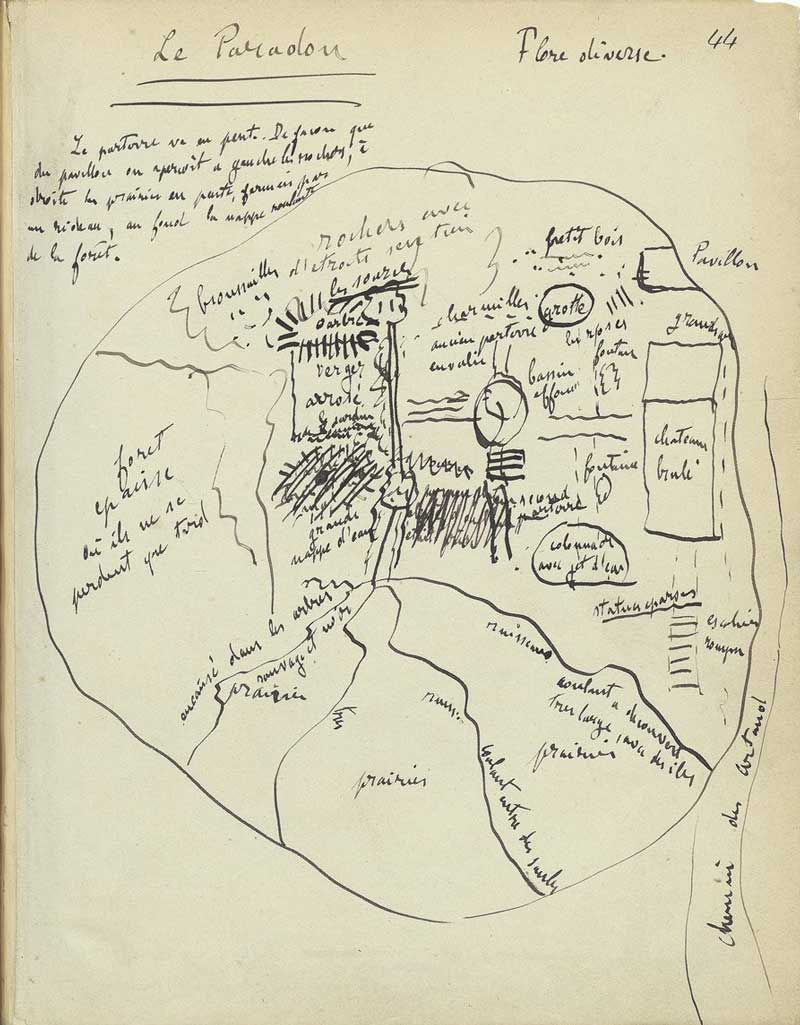 Le Paradou
Flore diverse.
44
Le parterre va en pente. De façon que
du pavillon on aperçoit à gauche les rochers, à
droite les prairies en pente, fermées par
un rideau, au fond la nappe roulante
de la forêt.
rochers avec
broussailles d'étroits sentiers
les sources
petit bois
Pavillon
grotte
charmilles
ancien parterre
envahi
les roses
verger
arrosé
bassin
fontaine
chateau
brulé
foret
epaisse
où ils ne se
perdent que tard
grande
nappe d'eau
un second
parterre
fontaine
colonnade
avec jet d'eau
statues eparses
escalier
rompu
encaissé dans les arbres
sauvage et noir
prairies
ruisseau
coulant à decouvert
tres large, avec des iles
prairies
prairies
ruiss.
coulant entre des saules
chemin des Artaud